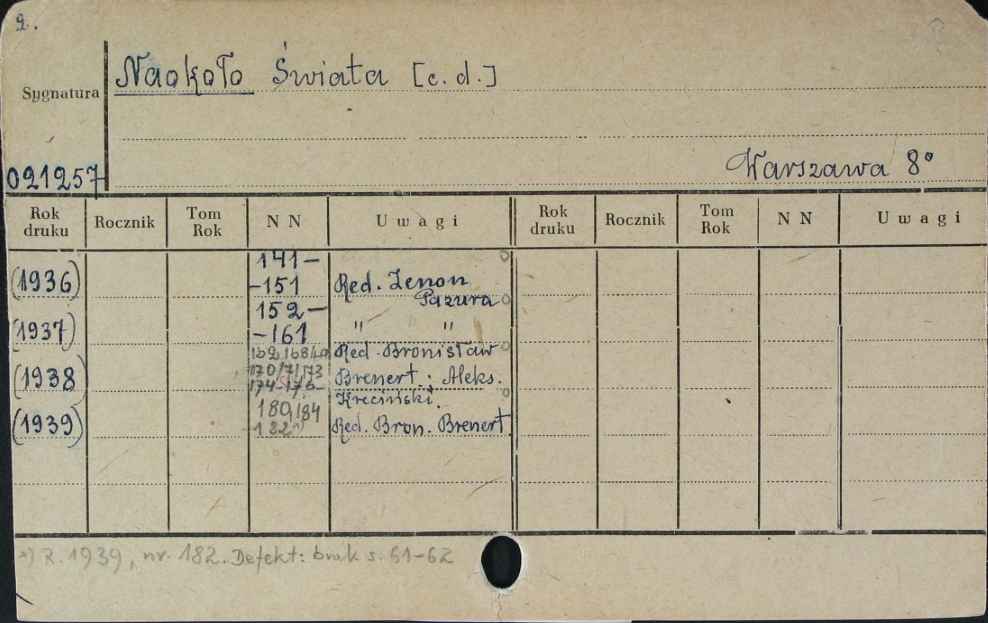 2.
Naokoło Świata [c. d.]
Sygnatura
021257
Warszawa 8°
Rok druku Rocznik Tom Rok N N Uwagi Rok druku Rocznik Tom Rok N N Uwagi
141-
(1936) -151 Red. Zenon
Pazura
152-
(1937) -161 " "
162, 168/
Red. Bronisław
170/71, 73
(1938) Brenert i Aleks.
Kreciński.
180, 184
(1939) 182 Red. Bron. Brenert
*) R. 1939, nr. 182. Defekt: brak s. 61-62